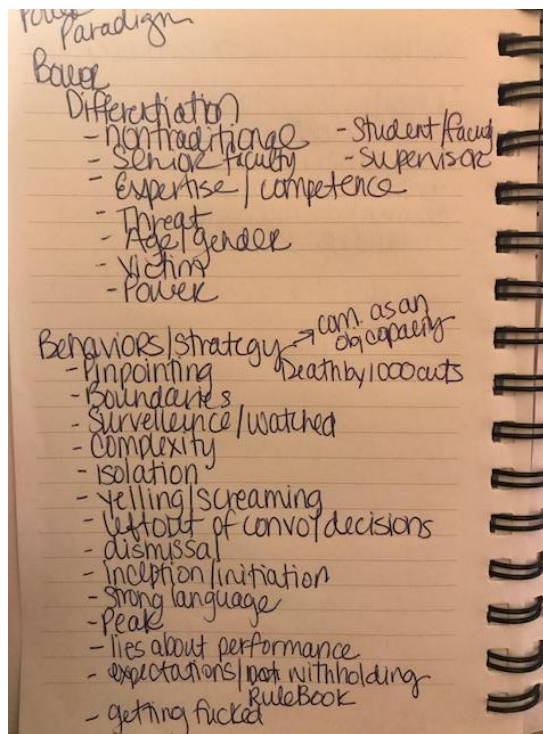 Power
Paradigm
Power
Differentiation
- Nontraditional - Student/facul
- Senior faculty - Supervisor
- Expertise/competence
- Threat
- Age/gender
- Victim
- Power
Behaviors/strategy → com. as an
Death by 1000 cuts
- Pinpointing
- Boundaries
- Surveileince/watched
- Complexity
- isolation
- yelling/screaming
- left out of convo/decisions
- dismissal
- inception/initiation
- Strong language
- Peak
- lies about performance
- expectations/ withholding
RuleBook
- getting fucked